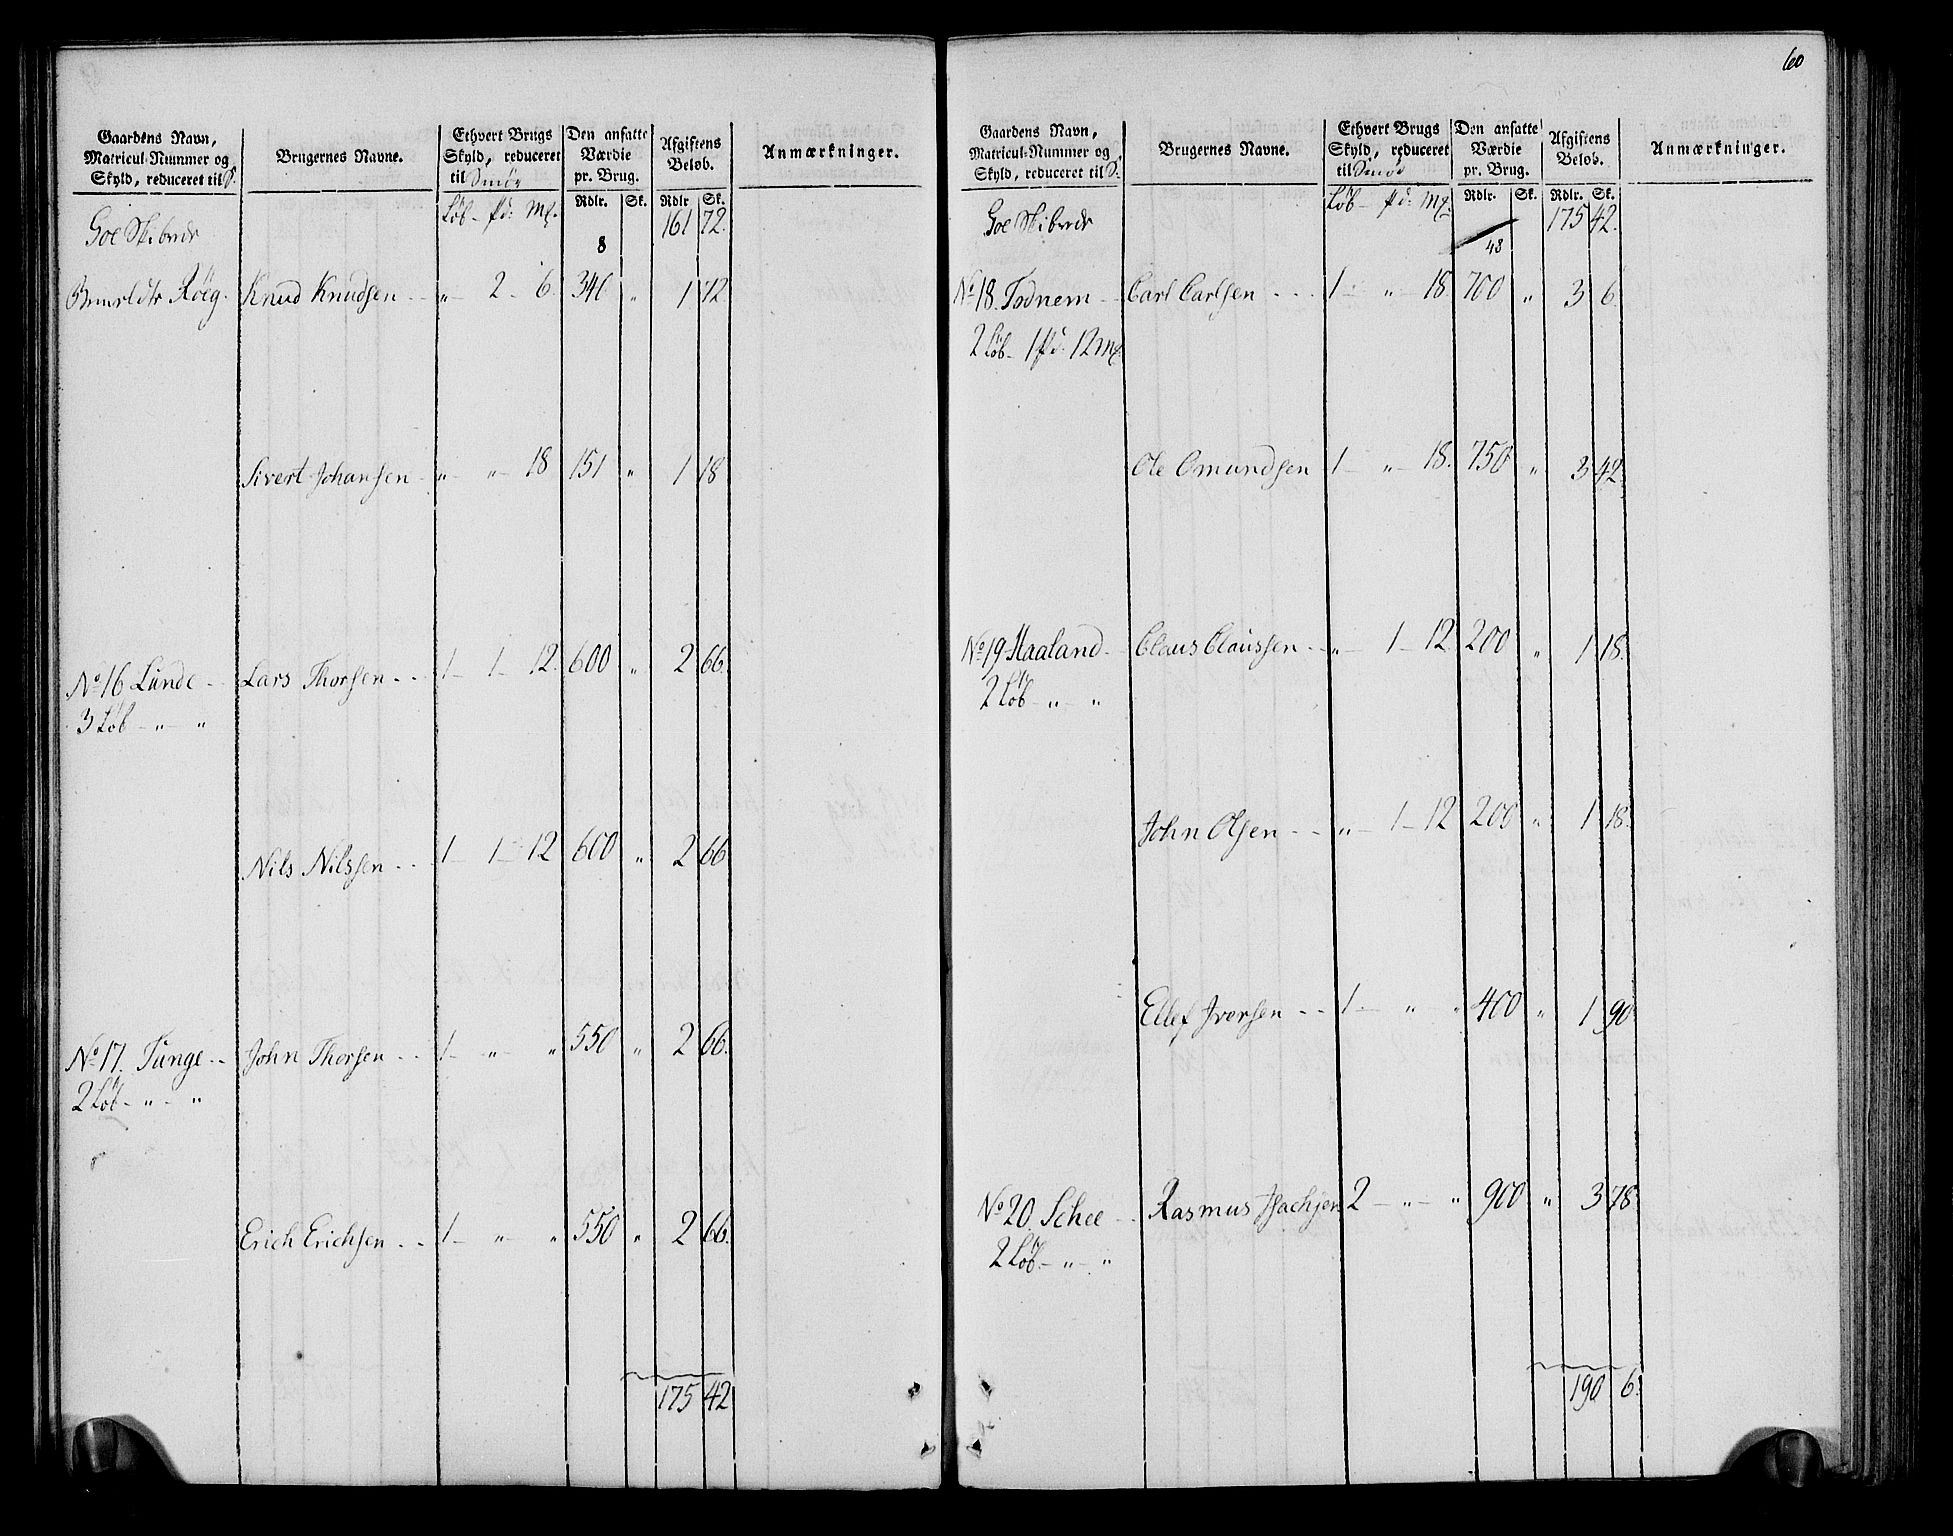 60
Gaardens Navn, Matricul-Nummer og Skyld, reduceret til S.
Brugernes Navne.
Ethvert Brugs Skyld, reduceret til Smör
Den ansatte Værdie pr. Brug.
Afgiftens Beløb.
Anmærkninger.
Löb - pd: Mk.
Rdlr. Sk. Rdlr. Sk.
Goe Skibrede 161 72.
8
Röeg. Knud Knudsen - - „ - 2 - 6. 346 „ 1 72
Sivert Johansen - „ - „ - 18 151 „ 1 18
No 16 Lunde - Lars Thorsen - - 1 - 1 - 12. 600 „ 2 66.
3 Löb - „ - „
Nils Nilssen - - 1 - 1 - 12 600 „ 2 66
No 17. Tunge - - John Thorsen - - 1 - „ - „ 550 „ 2 66.
2 Löb - „ - „
Erich Erichsen - - 1 - „ - „ 550 „ 2 66.
175 42
Gaardens Navn, Matricul-Nummer og Skyld, reduceret til S.
Brugernes Navne.
Ethvert Brugs Skyld, reduceret til Smör
Den ansatte Værdie pr. Brug.
Afgiftens Beløb.
Anmærkninger.
Löb - pd: Mk.
Rdlr. Sk. Rdlr. Sk.
Goe Skibrede 175 42.
48
No 18. Todnem - - Carl Carlsen - - - 1 - „ - 18. 700 „ 3 6.
2 Löb - 1 pd: 12 Mk.
Ole Omundsen 1 - „ - 18. 750 „ 3 42.
No 19 Haaland - Claus Claussen - - „ - 1 - 12 200 „ 1 18.
2 Löb - „ - „
John Olsen - - „ - 1 - 12 200 „ 1 18.
Ellef Iversen - - 1 - „ - „ 400 „ 1 90
No 20. Schee - - Rasmus Isachsen 2 - „ - „ 900 „ 3 78.
2 Löb - „ - „
190 6.